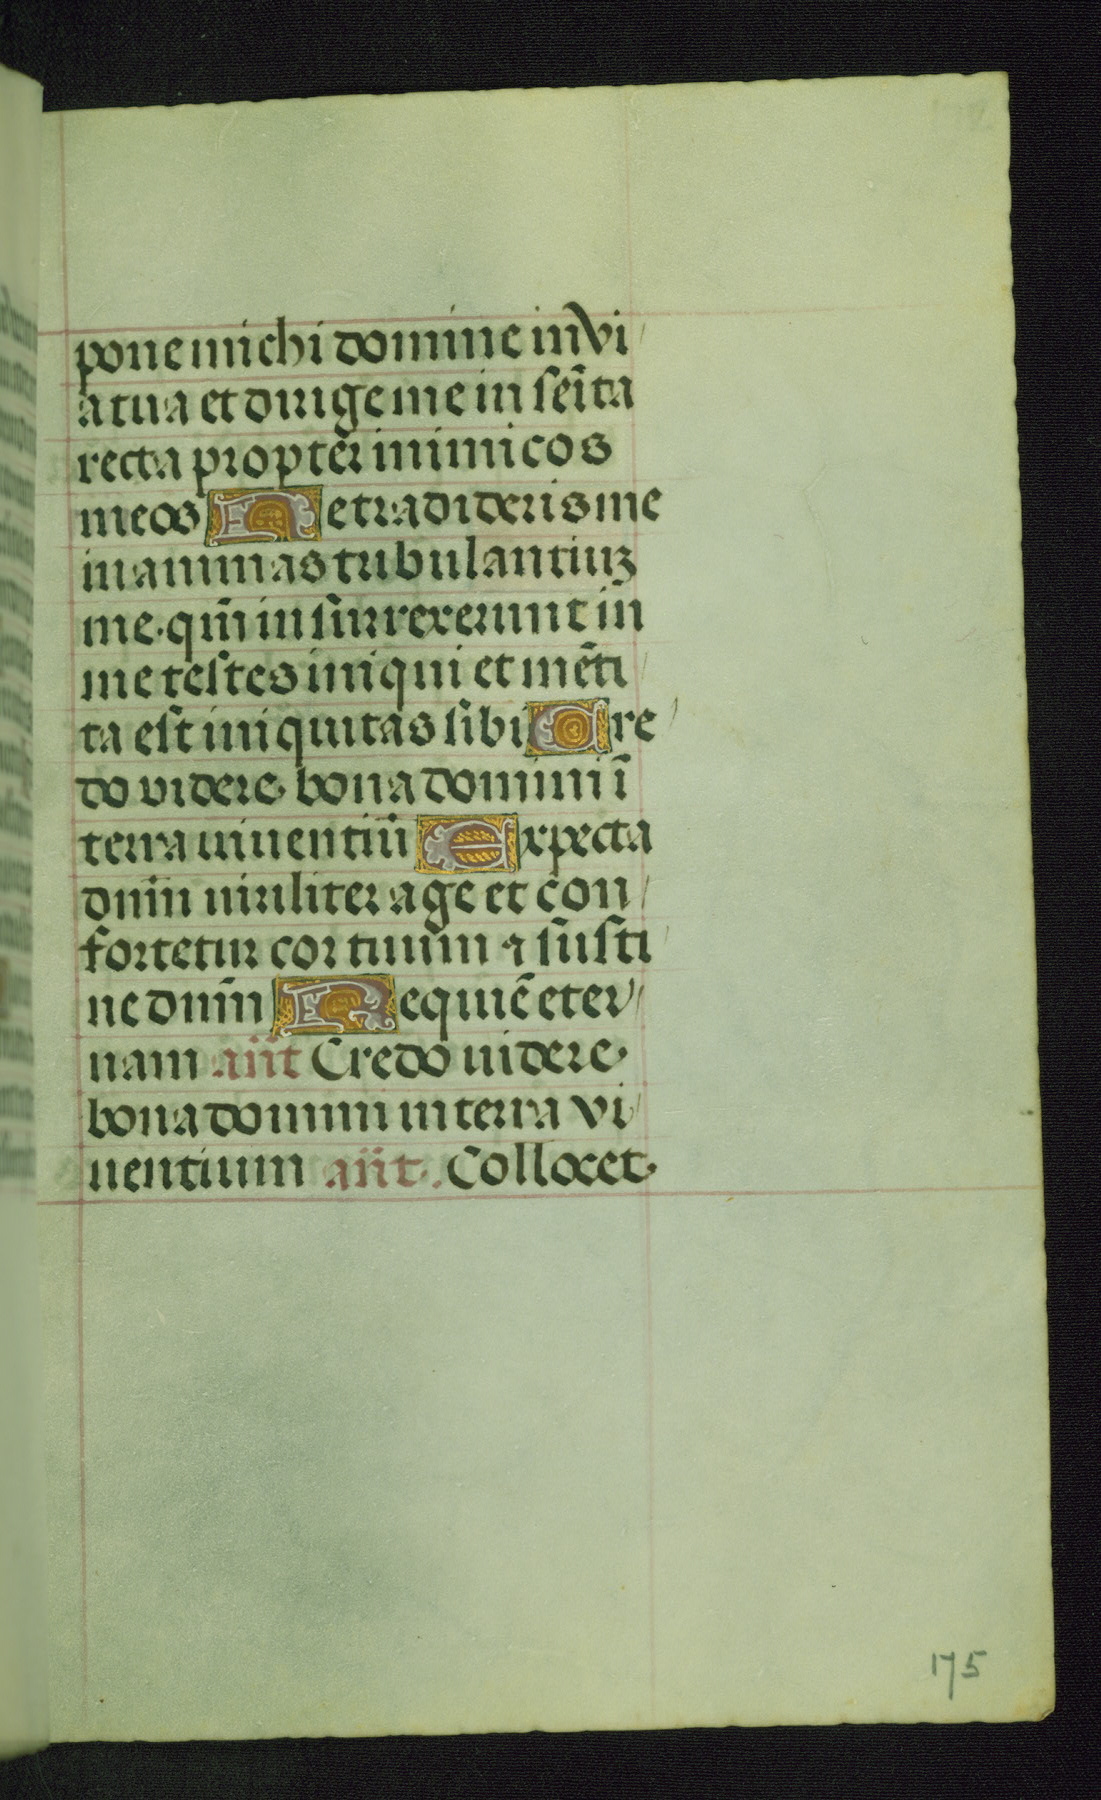 pone michi domine in vi
a tua et dirige me in semĩta
recta propter inimicos
meos Ne tradideris me
in animas tribulantiuʒ
me · qm̃ in surrexerunt in
me testes iniqui et mẽti
ta est iniquitas sibi Cre
do videre bona domini ĩ
terra uiuentiũ Expecta
dnm̃ uiriliter age et con
fortetur cor tuum ⁊ susti
ne dnm̃ Requiẽ eter
nam añt Credo uidere·
bona domini in terra vi
uentium añt·. Collocet·
175